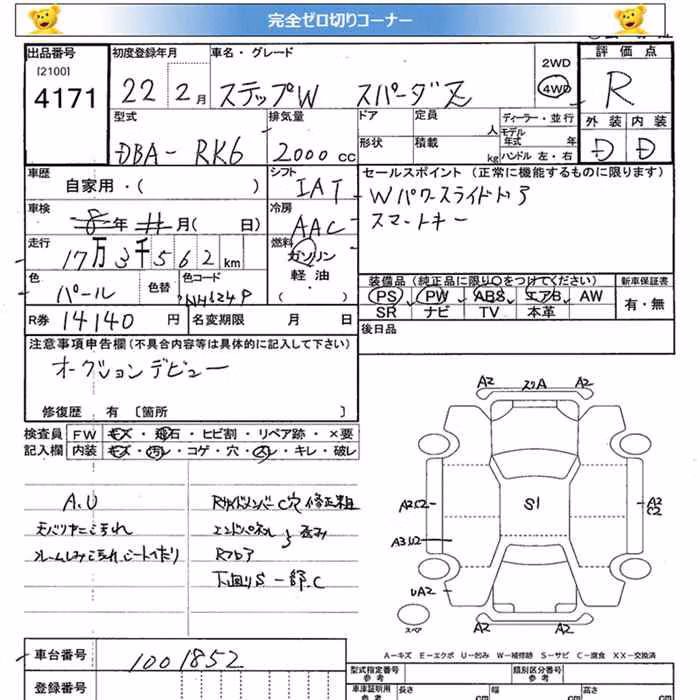 完全ゼロ切りコーナー
出品番号 初度登録年月 車名・グレード 評価点
[2100] 2WD
4171 22 2月 ステップW スパーダZ 4WD R
型式 排気量 ドア 定員 人 ディーラー・並行 外装 内装
DBA- RK6 2000 CC 形状 積載 kg モデル年式 年 ハンドル 左・右 D D
車歴 シフト セールスポイント (正常に機能するものに限ります)
自家用・( ) IAT Wパワースライドドア
車検 8年 月( 日) 冷房 AAC スマートキー
走行 17万3千562km 燃料 ガソリン
色 色替 色コード 軽・油 装備品 (純正品に限り○をつけてください) 新車保証書
パール NH624P ( ) PS PW ABS エアB AW 有・無
R券 14140円 名変期限 月 日 SR ナビ TV 本革
注意事項申告欄 (不具合内容等は具体的に記入して下さい) 後日品
オークションデビュー
修復歴 有 〔箇所 〕
検査員 FW キズ・飛石・ヒビ割・リペア跡・×要
記入欄 内装 キズ・汚レ・コゲ・穴・スレ・キレ・破レ
A2 スリA A2
A.U Rサイドメンバー C穴 修正
エンドパネル 歪み
Rフロア
下回りS 一部.C
A2 S1 A2 C2
UA2
スペア A2 A2
A-キズ E-エクボ U-凹み W-補修跡 S-サビ C-腐食 XX-交換済
車台番号 1001852
登録番号
型式指定番号 参考 類別区分番号 参考
車庫証明用 参考 長さ cm 幅 cm 高さ cm